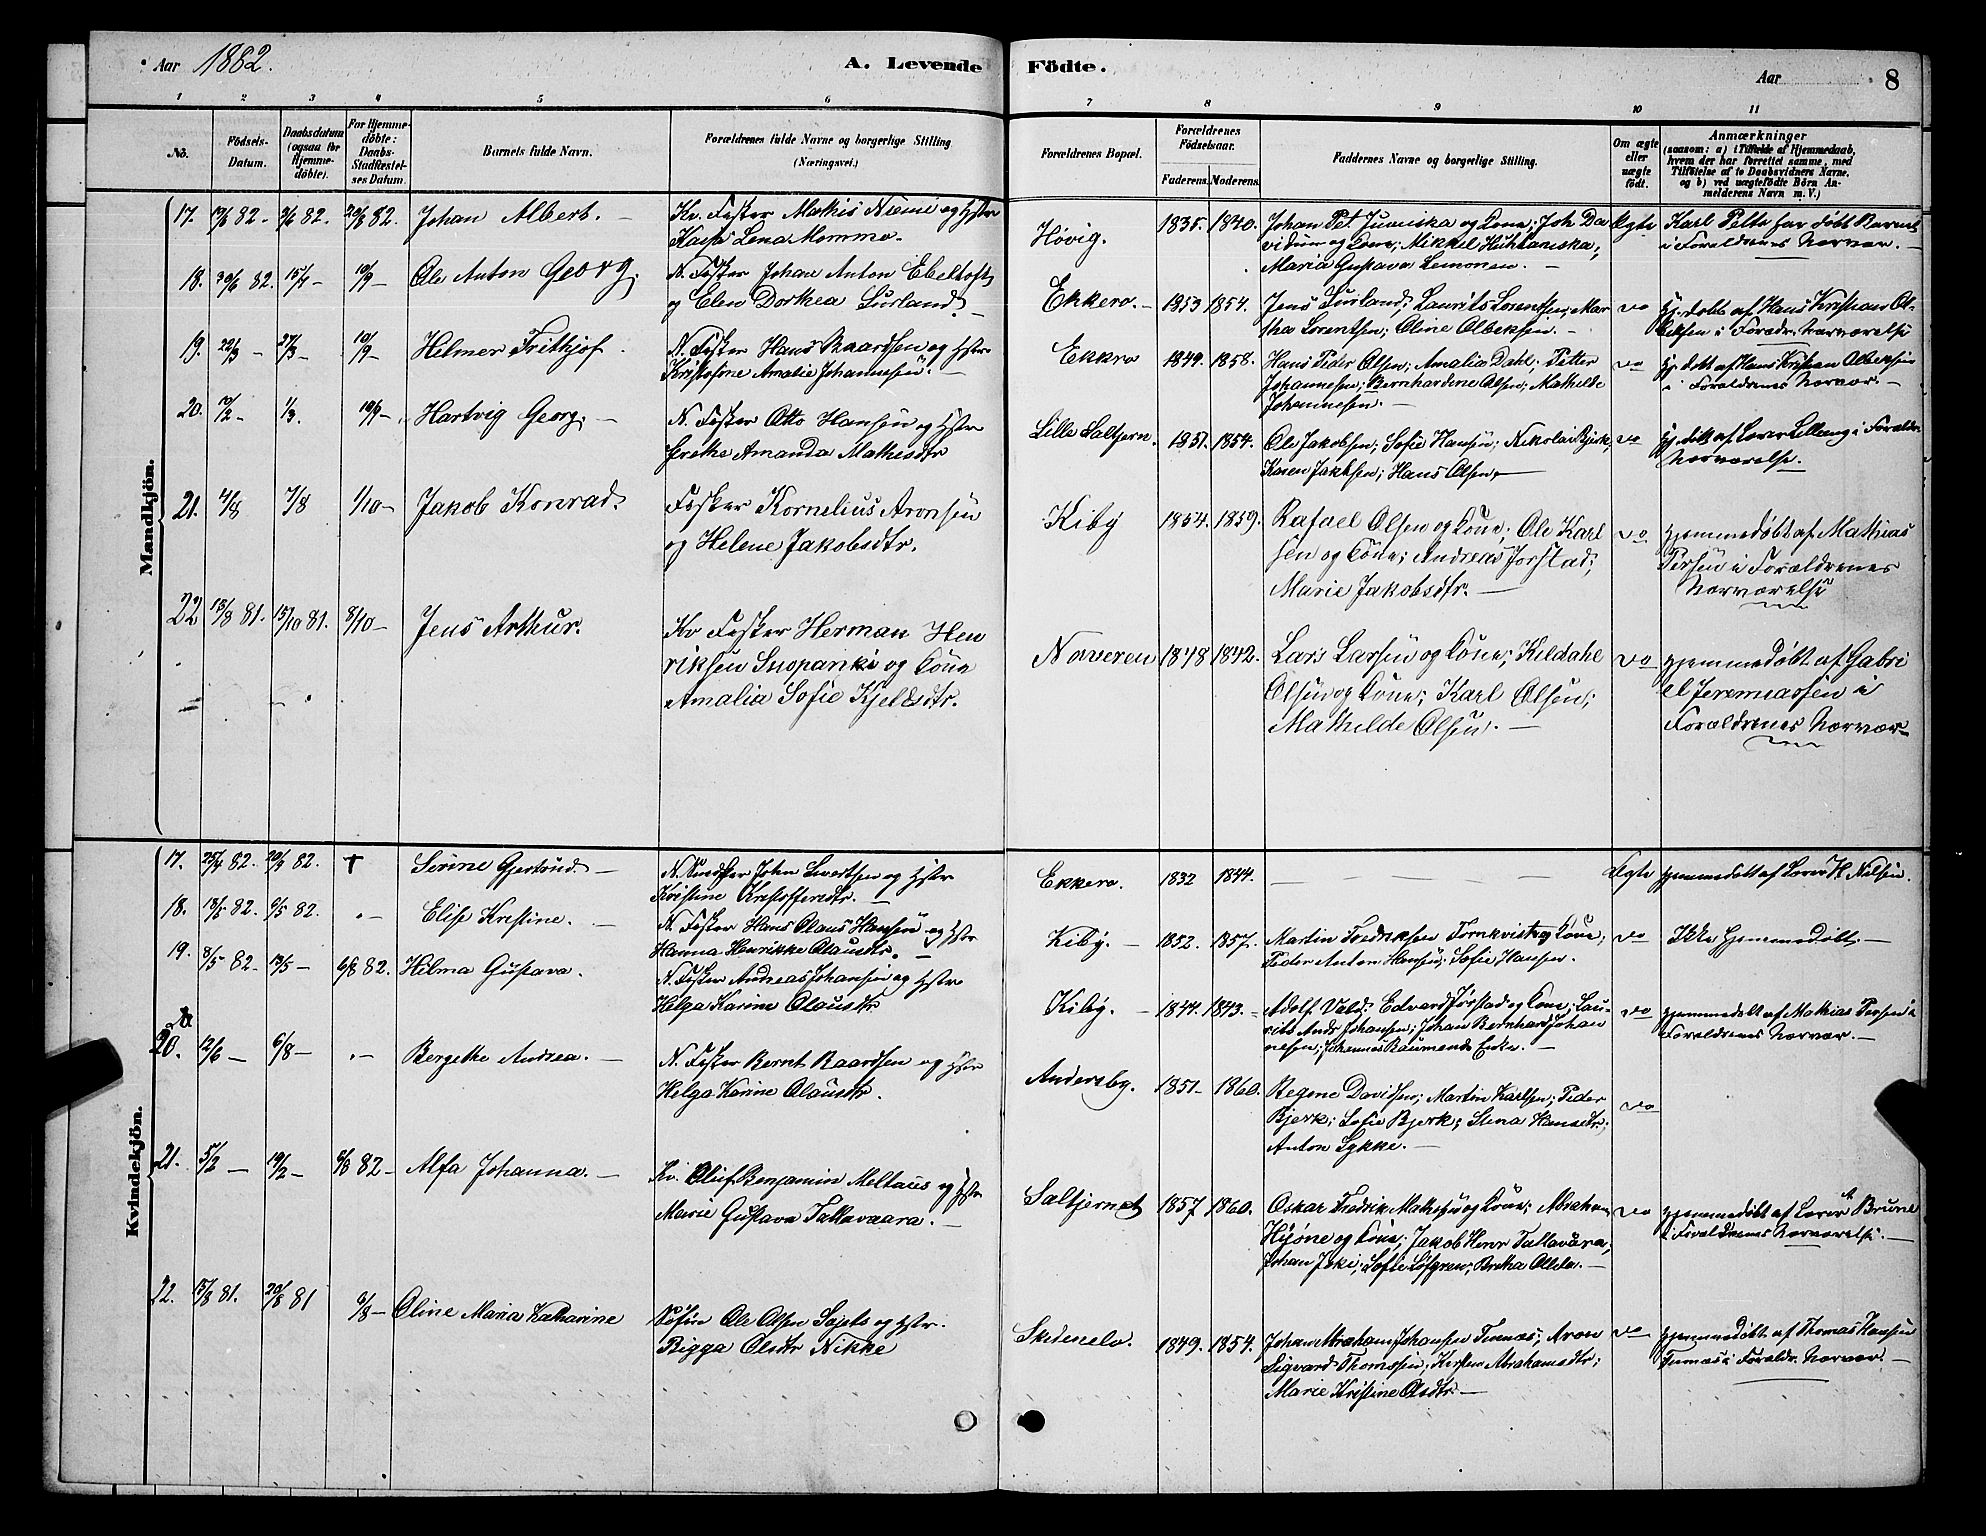 Aar 1882.
A. Levende Födte.
Aar
8
1 2 3 4 5 6 7 8 9 10 11
No.
Födsels-
Datum.
Daabsdatum
(ogsaa for
Hjemme-
döbte).
For Hjemme-
döbte:
Daabs-
Stadfæstel-
ses Datum.
Barnets fulde Navn.
Forældrenes fulde Navne og borgerlige Stilling.
(Næringsvei.)
Forældrenes Bopæl.
Forældrenes
Födselsaar.
Faderens. Moderens.
Faddernes Navne og borgerlige Stilling.
Om ægte
eller
uægte
födt.
Anmærkninger
(saasom: a) i Tilfælde af Hjemmedaab,
hvem der har forrettet samme, med
Tilföielse af to Daabsvidners Navne.
og b) ved uægtefödte Börn An-
melderens Navn m. V.)
Mandkjön.
17. Johan Albert.
Kv. Fisker Mathis Niemi og Hstr
Kaisa Lena Mommo.
Høvig.
1835. 1840.
Johan Pet. Juniska og Kone; Joh. Da
vidsen og Kone; Mikkel Huhtaniska;
Maria Gustava Lemonen.
Ægte
Karl Pelto har døbt Barnet
i Forældrenes Nærvær.
18. 30/6 82. 15/7 10/9
Ole Anton Georg.
N. Fisker Johan Anton Ebeltoft
og Elen Dorthea Surland.
Ekkerø.
1853 1854.
Jens Surland; Laurits Lorentsen; Mar
tha Lorentsen; Oline Olbeksen.
do
hj. døbt af Hans Kristian Ol
beksen i Forældr. Nærværelse
19. 22/3 27/3 10/9
Helmer Frithjof
N. Fisker Hans Baardsen og Hstr
Kristofine Amalie Johannesen.
Ekkerø
1849. 1858.
Hans Peder Olsen; Amalia Dahl; Petter
Johannesen; Bernhardine Olsen; Mathilde
Johannesen.
do
hj. døbt af Hans Kristian Olbeksen
i Forældrenes Nærvær.
20. 1/3. 10/9
Hartvig Georg.
N. Fisker Otto Hansen og Hstr
Grethe Amanda Mathisdtr
Lille Saltjern.
1851. 1854.
Ole Jakobsen; Sofie Hansen; Nikolai Bjerk;
Karen Jakobsen; Hans Olsen.
do
hj. døbt af Lærer Lilleeng i Forældr
Nærværelse.
21. 4/8 7/8 1/10
Jakob Konrad.
Fisker Kornelius Aronsen
og Helene Jakobsdtr.
Kiby
1854. 1859.
Rafael Olsen og Kone; Ole Karl
sen og Kone; Andreas Jørstad;
Marie Jakobsdtr.
do
hjemmedøbt af Mathias
Persen i Forældrenes
Nærværelse
22 15/8 81. 15/10 81. 8/10
Jens Arthur.
Kv Fisker Herman Hen
riksen Snopanki og Kone
Amalia Sofie Kjeldsdtr.
Naveren
1848 1842.
Lars Larsen og Kone; Kildahl
Olsen og Kone; Karl Olsen;
Mathilde Olsen.
do
hjemmedøbt af Gabri
el Jeremiassen i
Forældrenes Nærvær
Kvindekjön.
17. 25/4 82. 82. †
Serine Gjertrud.
John Sivertsen og Hstr
Kristine Kristoffersdtr.
Ekkerø.
1832 1844.
Ægte
hjemmedøbt af Lærer H. Nilsen.
18. 13/5 82. 82.
Elise Kristine.
N. Fisker Hans Olaus Hansen og Hstr
Hanna Henrikke Olausdtr.
Kiby.
1852. 1857.
Martin Fredriksen Tornkvist og Kone;
Peder Anton Hansen; Sofie Hansen.
do
Ikke Hjemmedøbt.
19. 8/5 82. 13/5 6/8 82.
Hilma Gustava.
N. Fisker Andreas Johansen og Hstr
Helga Karine Olausdtr
Kiby.
1844. 1843.
Adolf Vald. Edvard Jørstad og Kone; Lau-
rits Andr. Johansen; Johan Bernhard Johan
nesen; Johannes Raumands Enke.
do
hjemmedøbt af Mathias Persen i
Forældrenes Nærvær.
20. 12/6 6/8
Bergethe Andrea.
N. Fisker Bernt Baardsen og Hstr
Helga Karine Olausdtr.
Andersby.
1851 1860.
Regine Davidsen; Martin Karlsen; Peder
Bjerk; Sofie Bjerk; Stina Hansdtr;
Anton Lykke.
do
21. 5/2 19/2 6/8 82
Alfa Johanna.
Kv. Oluf Benjamin Meltaus og Hstr
Marie Gustava Tallavaara.
Saltjernet
1857 1860.
Oskar Fredrik Mathisen og Kone; Abraham
Hyöne og Kone; Jakob Henr Tallavara;
Johan Joki; Sofie Löfgren; Bretha Ollila.
do
hjemmedøbt af Lærer A Brune
i Forældrenes Nærværelse.
22. 15/8 81. 20/8 81 6/8
Oline Maria Katharine
Søfin Ole Olsen Sajets og Hstr.
Bigga Olsdtr Nikke
Skidenelv.
1849. 1854.
Johan Abraham Johansen Finnæs; Aron
Sigvard Thomssen; Kirsten Abrahamsdtr;
Marie Kristine Olsdtr.
do
hjemmedøbt af Thomas Hansen
Finnæs i Forældr. Nærvær.